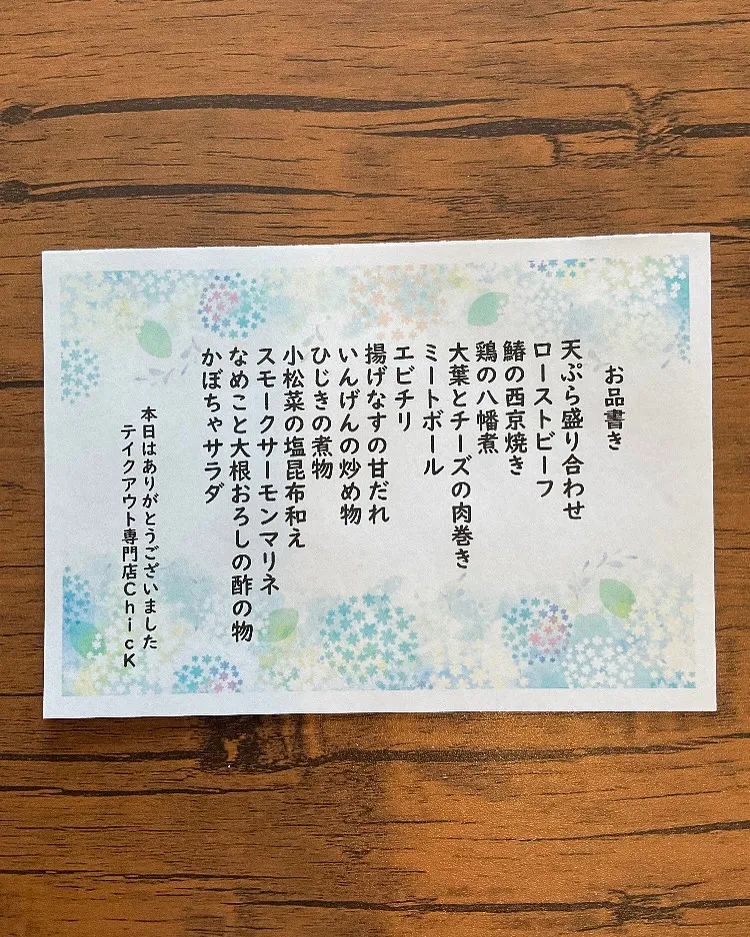 お品書き
天ぷら盛り合わせ
ローストビーフ
鰆の西京焼き
鶏の八幡煮
大葉とチーズの肉巻き
ミートボール
エビチリ
揚げなすの甘だれ
いんげんの炒め物
ひじきの煮物
小松菜の塩昆布和え
スモークサーモンマリネ
なめこと大根おろしの酢の物
かぼちゃサラダ
本日はありがとうございました
テイクアウト専門店ChicK